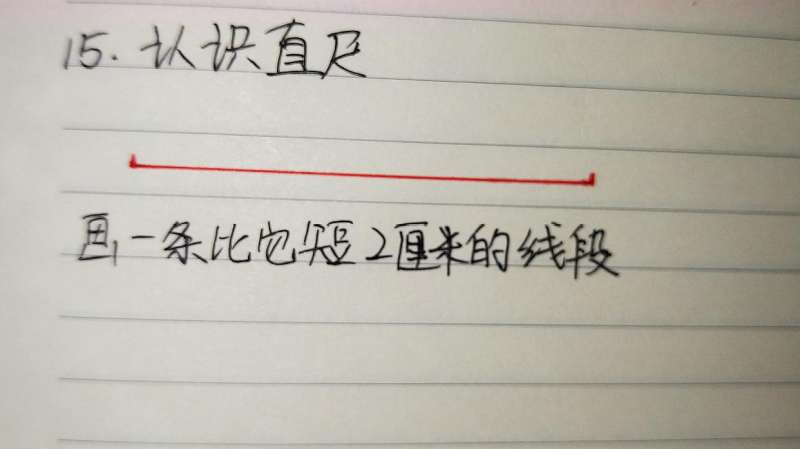 15. 认识直尺
画一条比它短2厘米的线段